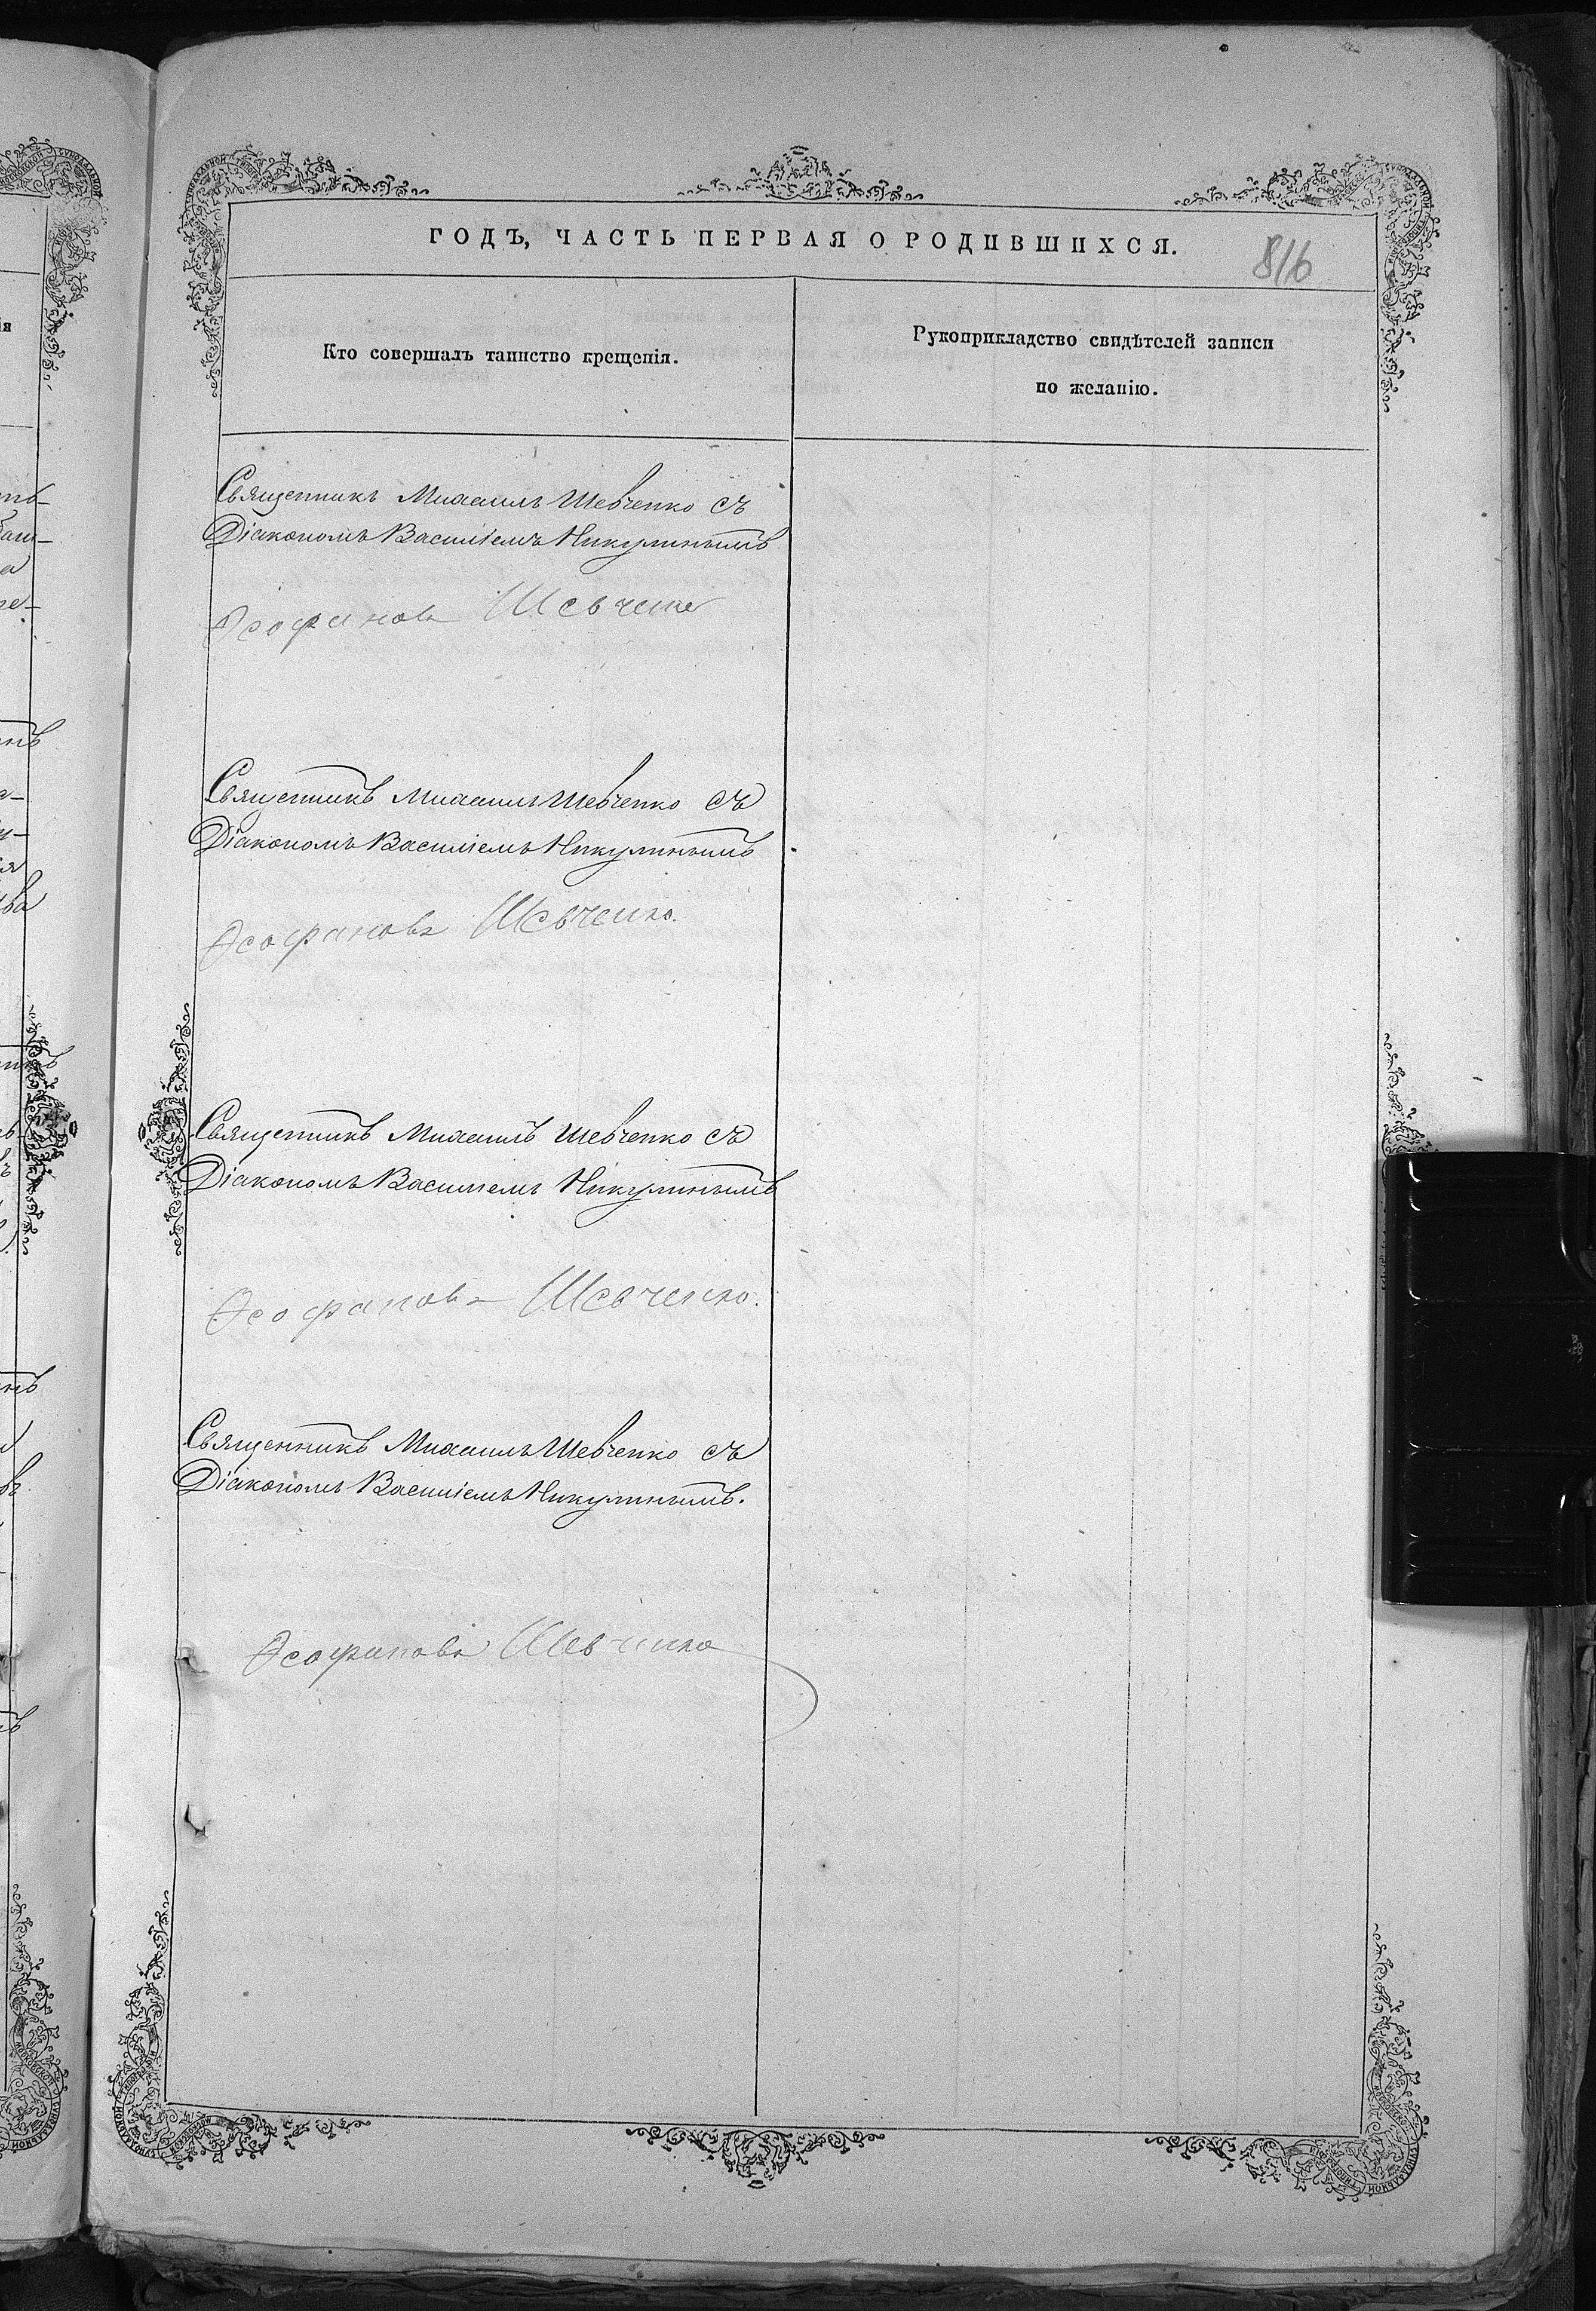 ГОДЪ, ЧАСТЬ ПЕРВАЯ О РОДИВШИХСЯ.
816
Кто совершалъ таинство крещенія.
Рукоприкладство свидѣтелей записи
по желанію.
Священникъ Михаилъ Шевченко съ
Діакономъ Василіемъ Никулинымъ
Ѳеофановъ Шевченко
Священникъ Михаилъ Шевченко съ
Діакономъ Василіемъ Никулинымъ
Ѳеофановъ Шевченко.
Священникъ Михаилъ Шевченко съ
Діакономъ Василіемъ Никулинымъ
Ѳеофановъ Шевченко.
Священникъ Михаилъ Шевченко съ
Діакономъ Василіемъ Никулинымъ.
Ѳеофановъ Шевченко